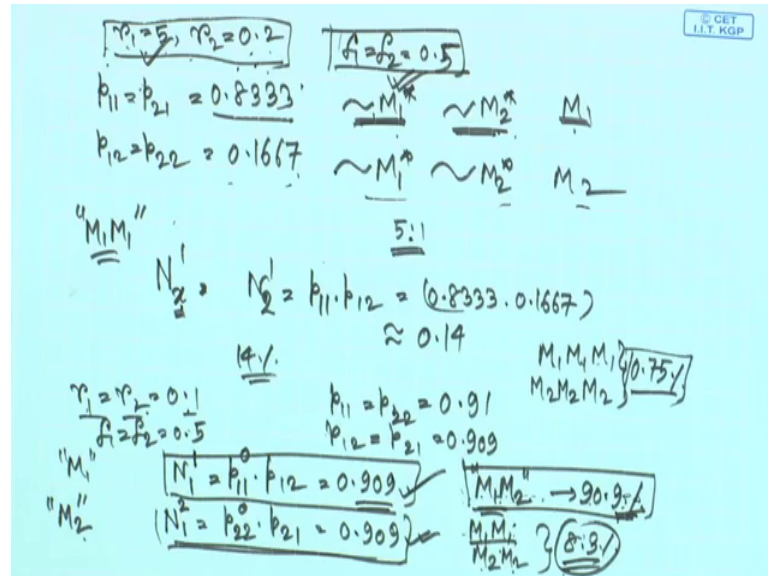 © CET
I.I.T. KGP
r₁=5, r₂=0.2
f₁=f₂=0.5
p₁₁=p₂₁ = 0.8333
~M₁* ~M₂* M₁
p₁₂=p₂₂ = 0.1667
~M₁* ~M₂* M₂
"M₁M₁"
5:1
Nₓ¹ = N₂¹ = p₁₁.p₁₂ = (0.8333.0.1667)
≈ 0.14
14%
M₁M₁M₁
M₂M₂M₂ } 0.75%
r₁=r₂=0.1
f₁=f₂=0.5
p₁₁=p₂₂=0.91
p₁₂=p₂₁=0.909
"M₁" N₁¹ = p₁₁⁰.p₁₂ = 0.909
"M₁M₂" → 90.9%
"M₂" N₁² = p₂₂⁰.p₂₁ = 0.909
M₁M₁
M₂M₂ } 8.3%